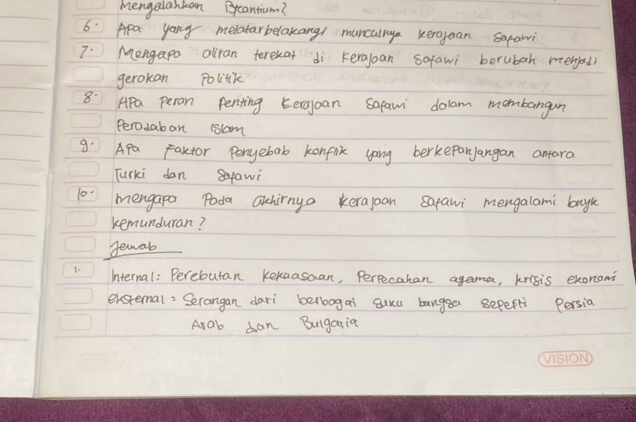 mengalahkan Bycantium?
6. Apa yang melatarbelakangi munculnya kerajaan Safawi
7. Mengapa aliran terekat di kerajaan Safawi berubah menjadi
gerakan Politik
8. Apa peran penting kerajaan Safawi dalam membangun
Peradaban Islam
9. Apa Faktor Penyebab konflik yang berkepanjangan antara
Turki dan Safawi
10. mengapa Pada akhirnya kerajaan Safawi mengalami bnyk
kemunduran?
Jawab
1. Internal: Perebutan Kekuasaan, Perpecahan agama, krisis ekonomi
eksternal: Serangan dari berbagai suku bangsa seperti Persia
Arab dan Bulgaria
VISION